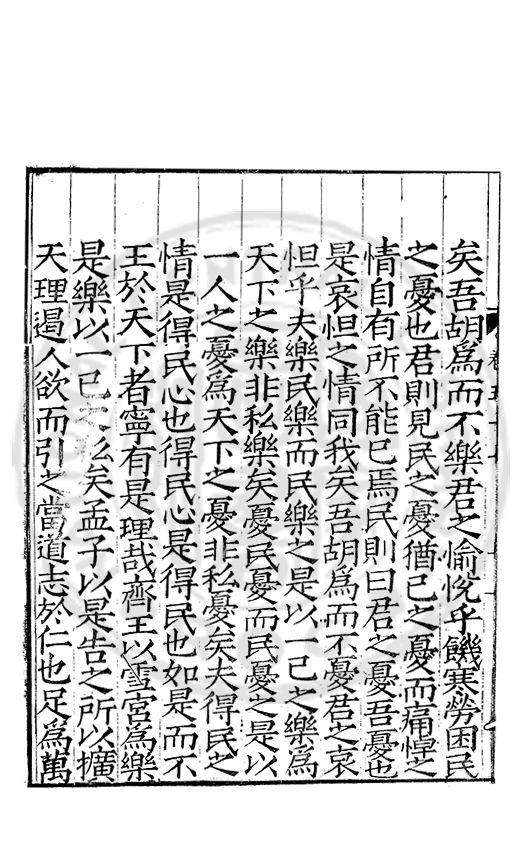 矣吾胡爲而不樂君之愉悅乎饑寒勞困民
之憂也君則見民之憂猶己之憂而痛悼之
情自有所不能已焉民則曰君之憂吾憂也
是哀怛之情同我矣吾胡爲而不憂君之哀
怛乎夫樂民樂而民樂之是以一己之樂爲
天下之樂非私樂矣憂民憂而民憂之是以
一人之憂爲天下之憂非私憂矣夫得民之
情是得民心也得民心是得民也如是而不
王於天下者寧有是理哉齊王以雪宮爲樂
是樂以一已之私矣孟子以是告之所以擴
天理遏人欲而引之當道志於仁也足爲萬